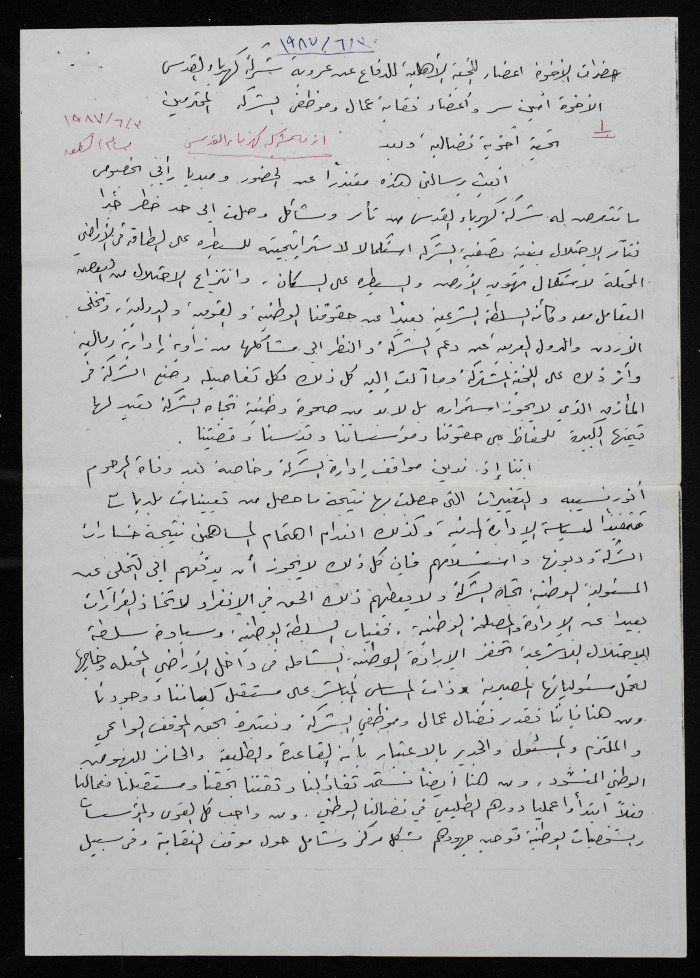 ١٩٨٧/٦/٣٠
حضرات الإخوة اعضاء اللجنة الأهلية للدفاع عن عروبة شركة كهرباء القدس
الأخوة أمين سر وأعضاء نقابة عمال وموظفي الشركة المحترمين
١٩٨٧/٦/٣٠
١
بسام الشكعه
تحية أخوية نضالية وبعد
أزمة شركة كهرباء القدس
ابعث رسالتي هذه معتذراً عن الحضور ومبديا رأيي بخصوص
ما تتعرض له شركة كهرباء القدس من تآمر ومشاكل وصلت إلى حد خطر جداً
فتآمر الاحتلال بغية تصفية الشركة استكمالا لاستراتيجيته للسيطرة على الطاقة في الأراضي
المحتلة لاستكمال تهويد الأرض والسيطرة على السكان، وانتزاع الاحتلال من البعض
التعامل معه وكأنه السلطة الشرعية بعيداً عن حقوقنا الوطنية والقومية والدولية، وتخلي
الأردن والدول العربية عن دعم الشركة والنظر الى مشاكلها من زاوية إدارية ومالية
وأثر ذلك على اللجنة المشتركة وما آلت إليه كل ذلك بكل تفاصيله وضع الشركة في
المأزق الذي لا يجوز استمراره بل لا بد من صحوة وطنية تجاه الشركة تعيد لها
قيمتها الكبيرة للحفاظ على حقوقنا ومؤسساتنا وقدسنا وقضيتنا.
اننا إذ ندين مواقف إدارة الشركة وخاصة بعد وفاة المرحوم
أنور نسيبه والتغييرات التي حصلت بها نتيجة ما حصل من تعيينات بلديات
تنفيذا لسياسة الإدارة المدنية وكذلك انعدام اهتمام المساهمين نتيجة خسارات
الشركة وديونها واستسلامهم فإن كل ذلك لا يجوز أن يدفعهم الى التخلي عن
المسئولية الوطنية تجاه الشركة ولا يعطيهم ذلك الحق في الإنفراد لاتخاذ القرارات
بعيدا عن الإرادة والمصلحة الوطنية، فغياب السلطة الوطنية وسيادة سلطة
الاحتلال اللاشرعية تحفز الإرادة الوطنية الشاملة في داخل الأراضي المحتلة وخارجها
لتحمل مسئولياتها المصيرية وذات المساس المباشر على مستقبل كياننا ووجودنا
ومن هنا فإننا نقدر نضال عمال وموظفي الشركة ونعتبره بحق الموقف الواعي
والملتزم والمسئول والجدير بالاعتبار بأنه القاعدة والطليعة والحافز للنهوض
الوطني المنشود، ومن هنا أيضاً نستمد تفاؤلنا وثقتنا بحقنا ومستقبلنا فعمالنا
فعلاً ابتدأوا عمليا دورهم الطليعي في نضالنا الوطني. ومن واجب كل القوى والمؤسسات
والشخصيات الوطنية توحيد جهودهم بشكل مركز وشامل حول موقف النقابة وفي سبيل